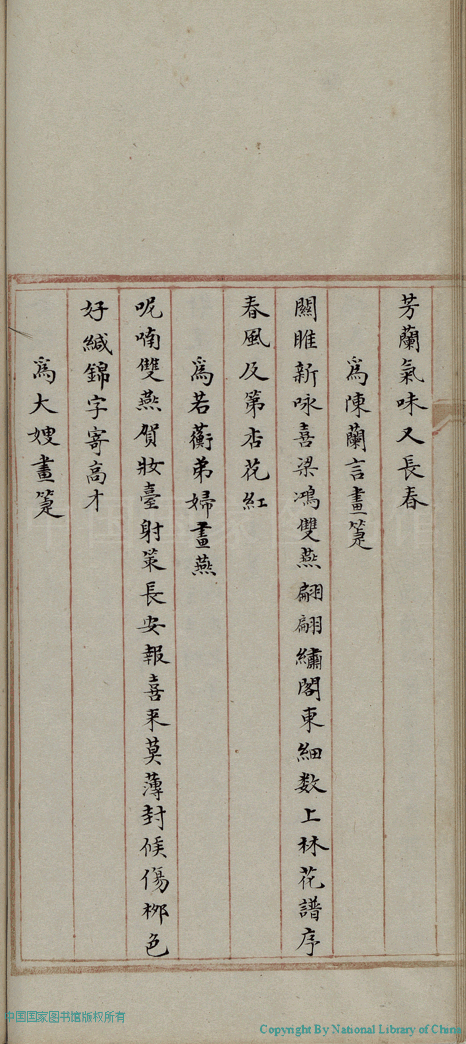 芳蘭氣味又長春
為陳蘭言畫箑
關雎新咏喜梁鴻雙燕翩翩繡閣東細数上林花譜序
春風及第杏花紅
為若蘅弟婦畫燕
呢喃雙燕賀妝臺射策長安報喜来莫薄封侯傷栁色
好緘錦字寄高才
為大嫂畫箑
中国国家图书馆版权所有
Copyright By National Library of China